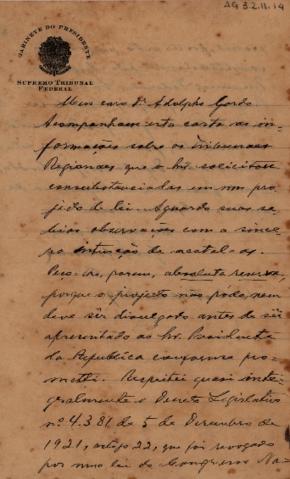 AG 3.2.11.14
GABINETE DO PRESIDENTE
SUPREMO TRIBUNAL
FEDERAL
Meu caro Dr Adolpho Gordo
Acompanham esta carta as in-
formações sobre os tribunaes
Regionaes que o Sr. solicitou
consubstanciadas em um pro-
jecto de lei. Aguardo suas sa-
bias observações com a since-
ra intenção de acatal-as.
Peço-lhe, porem, absoluta reserva,
porque o projecto não pode, nem
deve sêr divulgado antes de sêr
apresentado ao Sr. Presidente
da Republica conforme pro-
metti. Respeitei quasi inte-
gralmente o Decreto Legislativo
nº 4.381 de 5 de Dezembro de
1921, artigo 22, que foi revogado
por uma lei do Congresso Na-